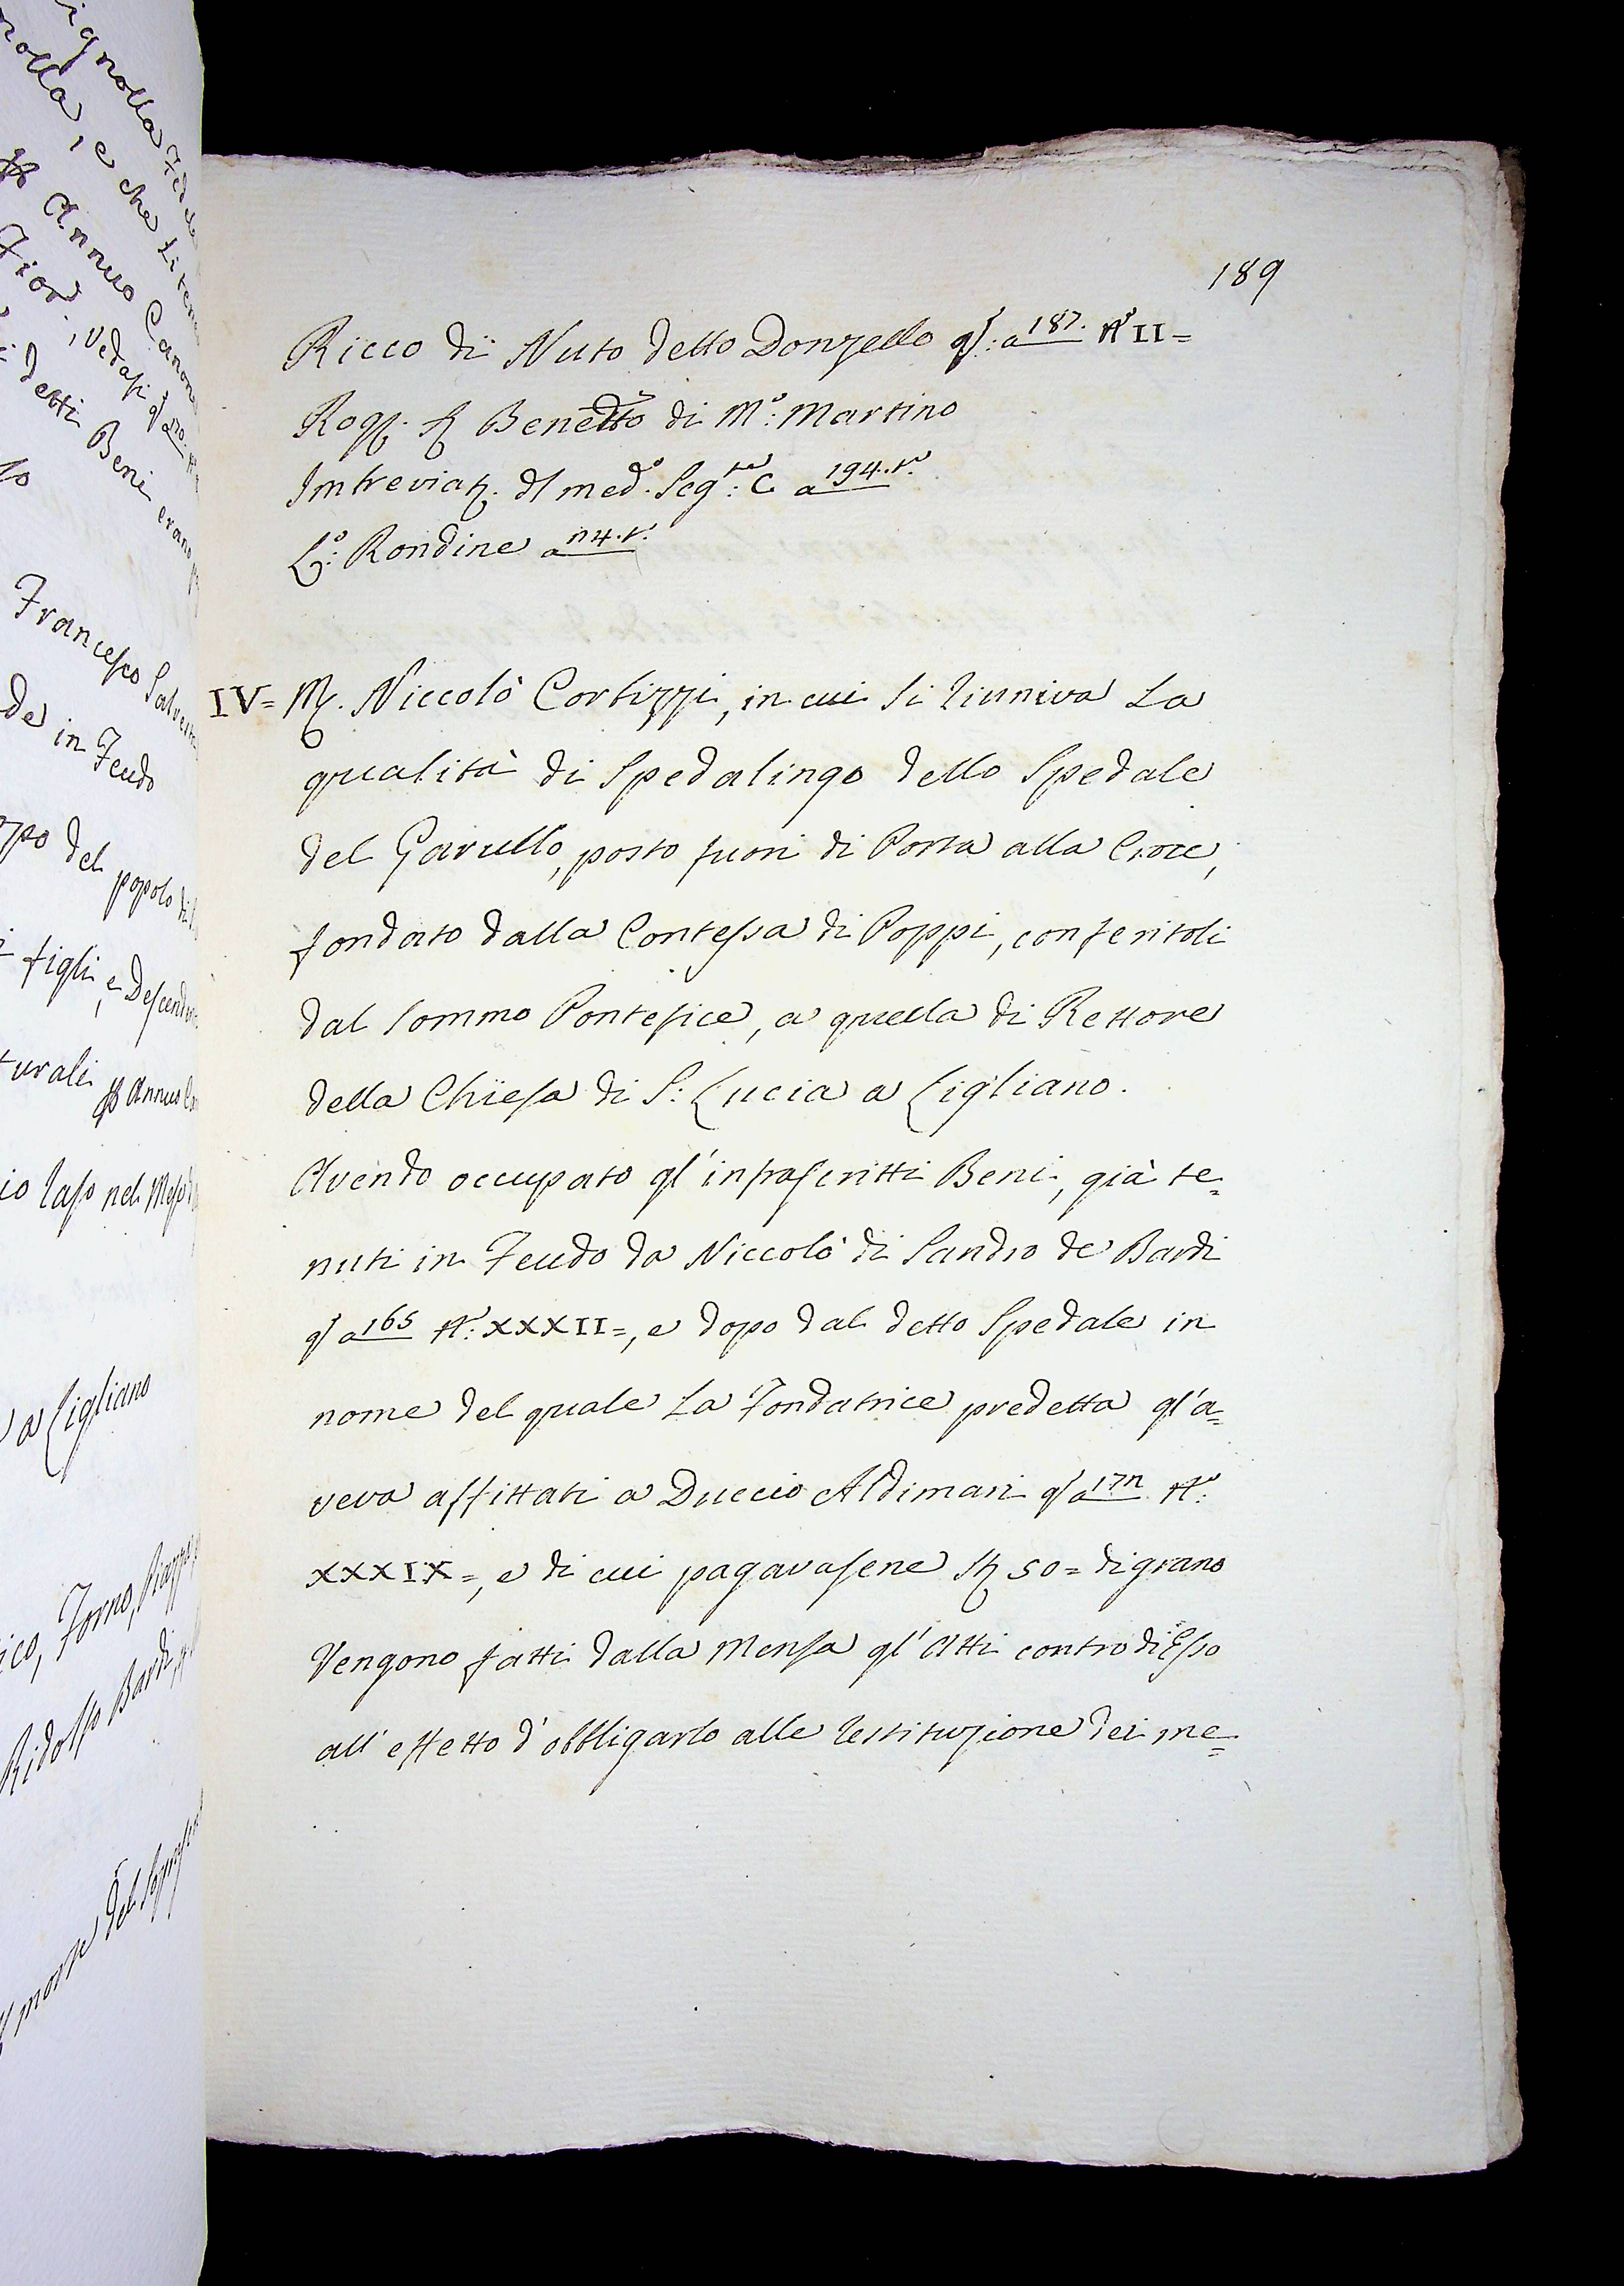 189
Ricco di Nuto dello Donzello qs: a 187. N° II=
Rog. S Benedtto di M°: Martino
Imbreviaz. dl med° Seg:te C a 194.t°
L°: Rondine a 114.t°
IV= Mr. Niccolò Cortizzi, in cui si riuniva La
qualità di Spedalingo dello Spedale
del Garullo, posto fuori di Porta alla Croce,
fondato dalla Contessa di Poppi, conferitoli
dal Sommo Pontefice, a quella di Rettore
della Chiesa di S: Lucia a Ligliano.
Avendo occupato gl'infrascritti Beni, già te=
nuti in Feudo da Niccolò di Sandro de Bardi
qs a 165 N°: XXXII=, e dopo dal detto Spedale in
nome del quale La Fondatrice predetta gl'a=
veva affittati a Duccio Aldimari qs a 171 N°:
XXXIX=, e di cui pagavasene St 50= di grano
Vengono fatti dalla Mensa gl'Atti contro di Esso
all'effetto d'obbligarlo alle restituzione dei me=
ignolla
nolla, e che
Annuo Canon
Fior., Vedasi
detti Beni erano
Francesco
de in Feudo
del popolo
figli, e Descend
turali Annuo
nel Mese
a Ligliano
ico, Forno, Piazza
Ridolfo Bardi
del